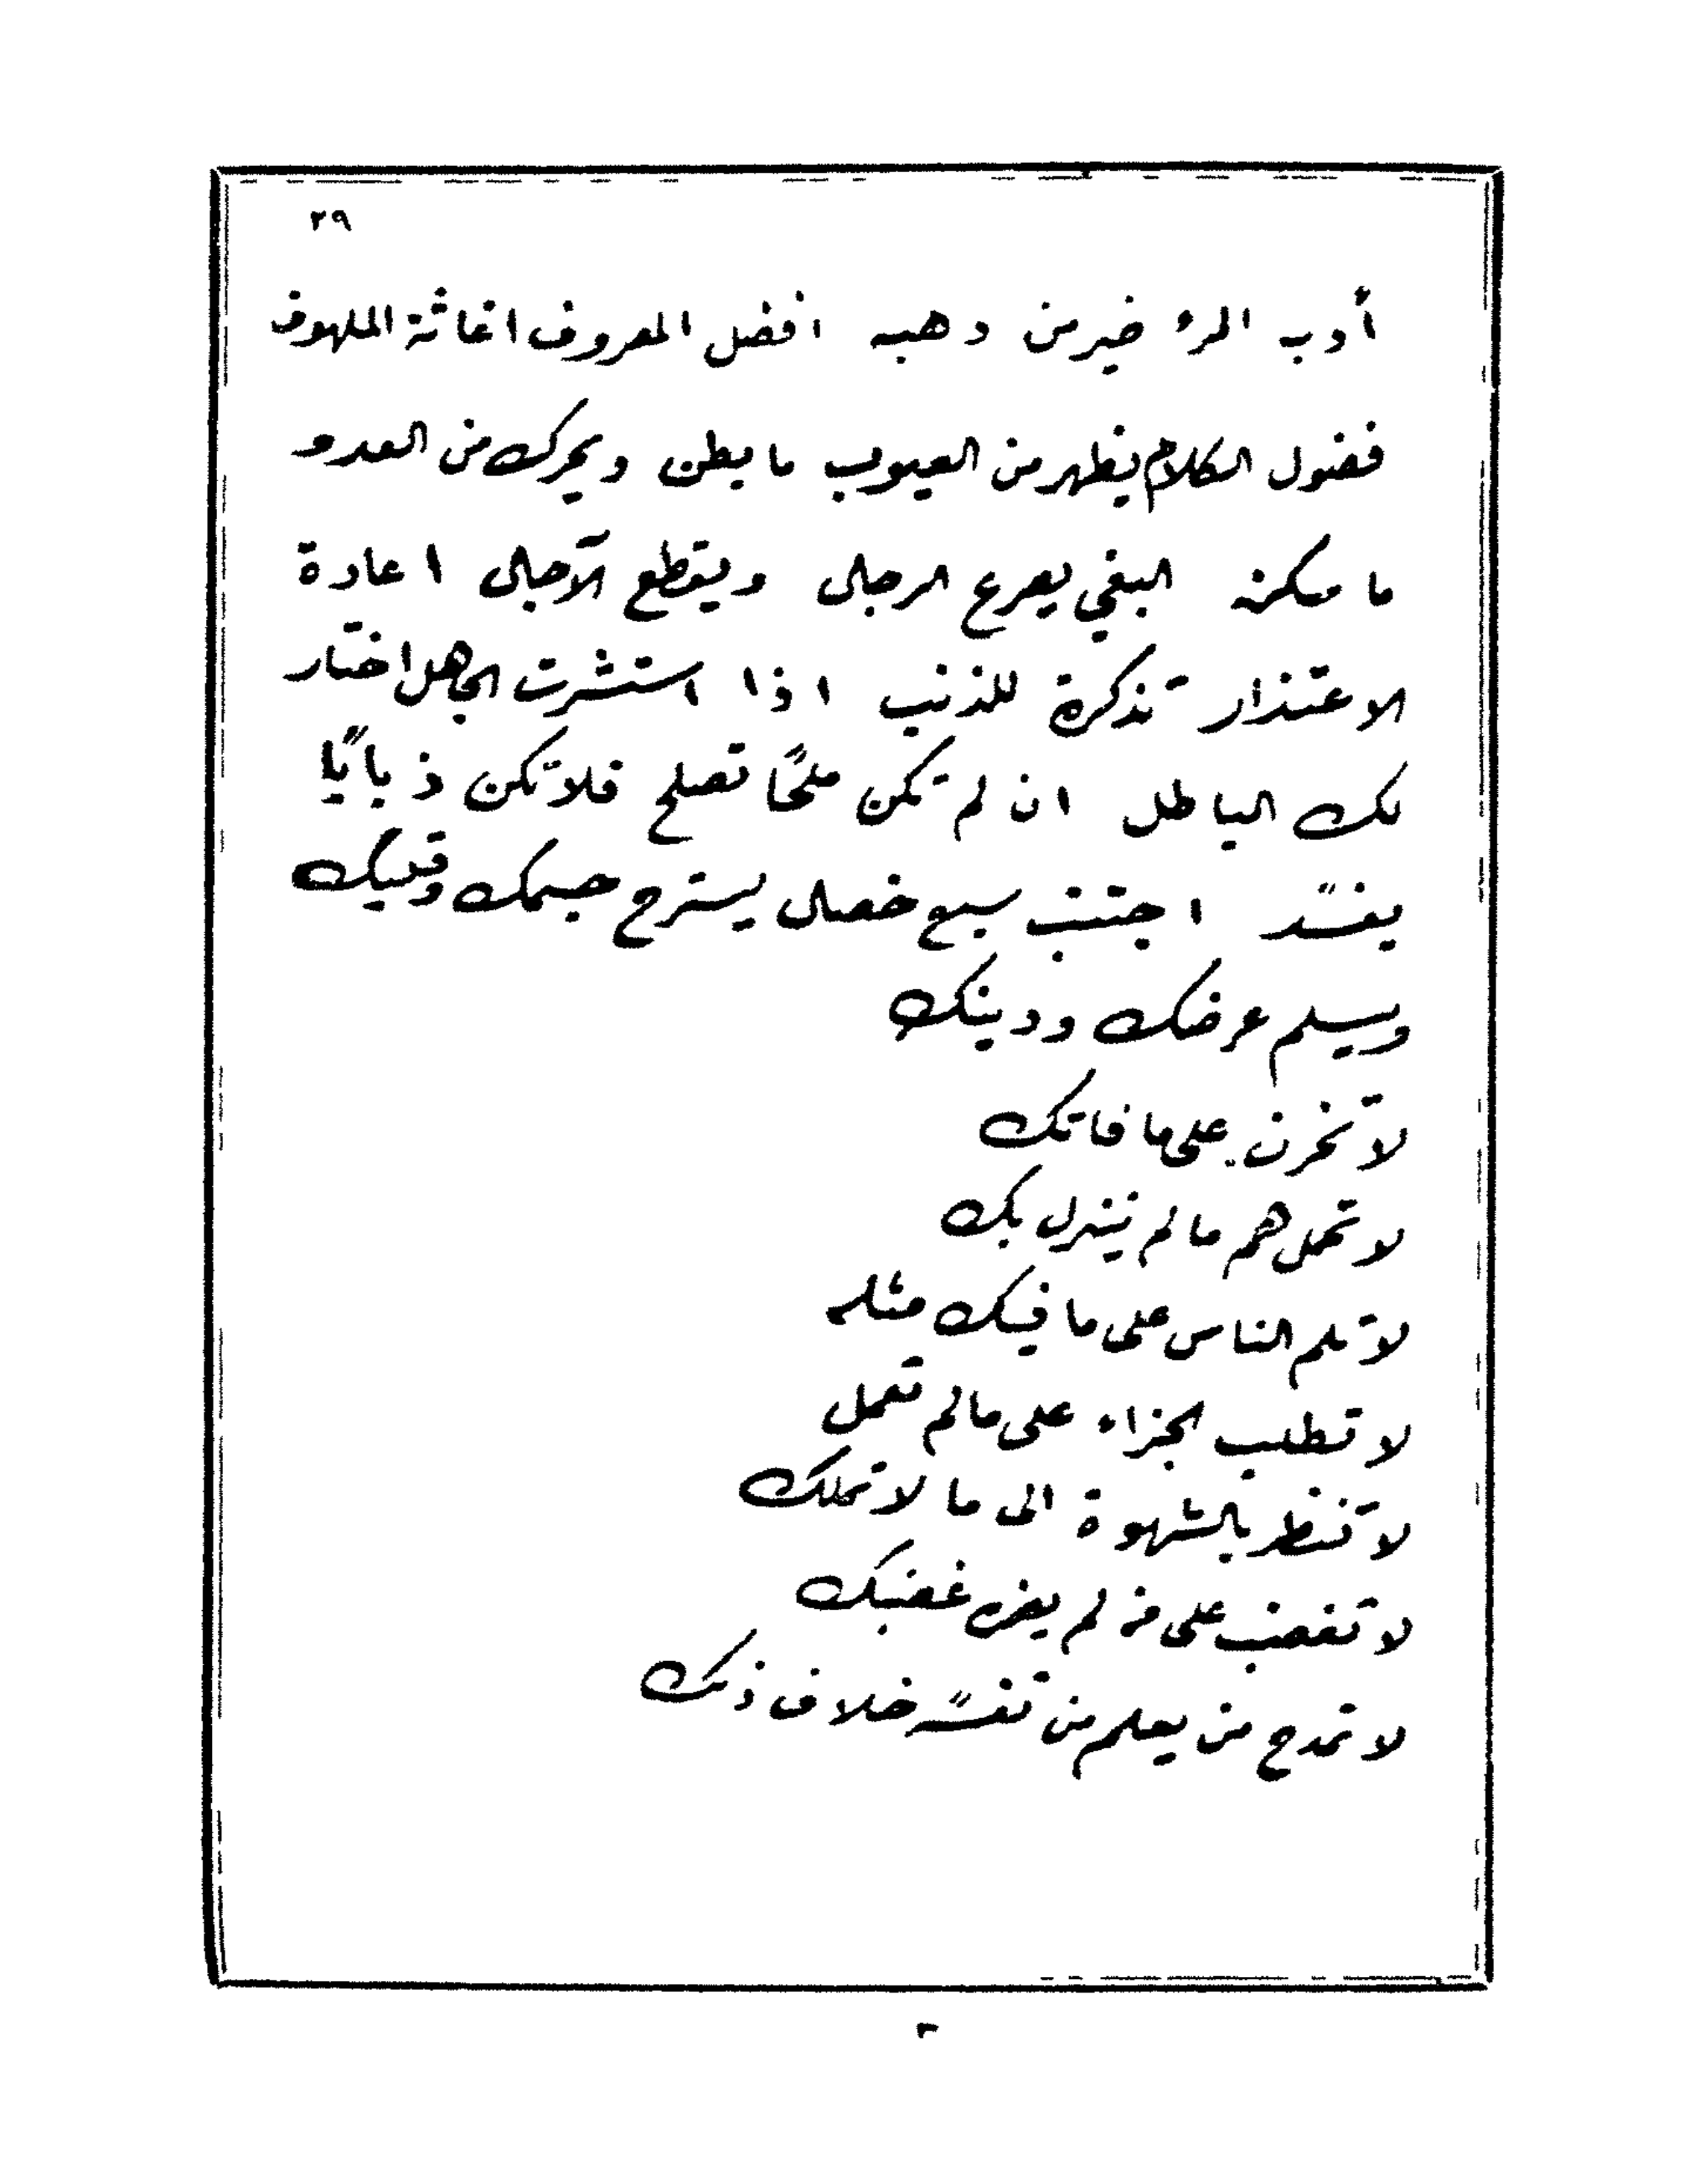 ٢٩
أدب المرء خير من ذهبه افضل المعروف اغاثة الملهوف
فضول الكلام يظهر من العيوب ما بطن ويحرك من العدو
ما سكن البغي يصرع الرجال ويقطع الآجال اعادة
الاعتذار تذكرة للذنب اذا استشرت الجاهل اختار
لك الباطل ان لم تكن ملحًا تصلح فلا تكن ذبابًا
يفسد اجتنب سبع خصال يسترح جسمك وقلبك
ويسلم عرضك ودينك
لا تحزن على ما فاتك
لا تحمل هم ما لم ينزل بك
لا تلم الناس على ما فيك مثله
لا تطلب الجزاء على ما لم تعمل
لا تنظر بالشهوة الى ما لا تملك
لا تغضب على من لم يضره غضبك
لا تمدح من يعلم من نفسه خلاف ذلك